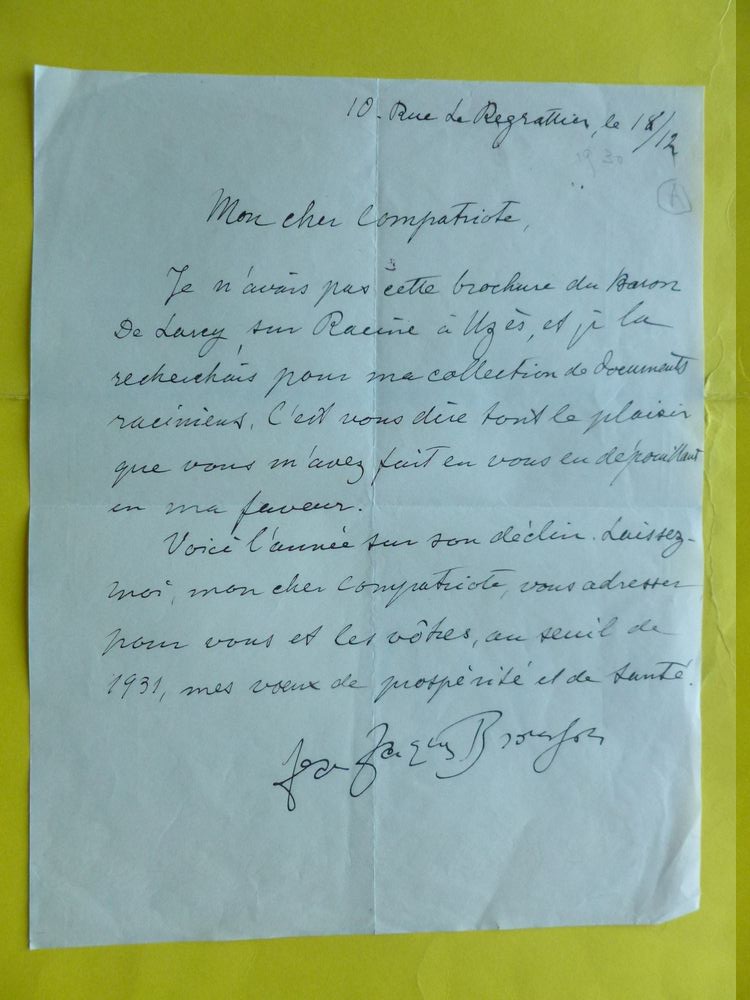 10. Rue Le Regrattier, le 18/12
1930
A
Mon cher Compatriote,
Je n'avais pas cette brochure du Baron
De Larcy, sur Racine à Uzès, et je la
recherchais pour ma collection de documents
raciniens. C'est vous dire tout le plaisir
que vous m'avez fait en vous en dépouillant
en ma faveur.
Voici l'année sur son déclin. Laissez-
moi, mon cher Compatriote, vous adresser
pour vous et les vôtres, au seuil de
1931, mes vœux de prospérité et de santé.
Jean Jacques Brousson